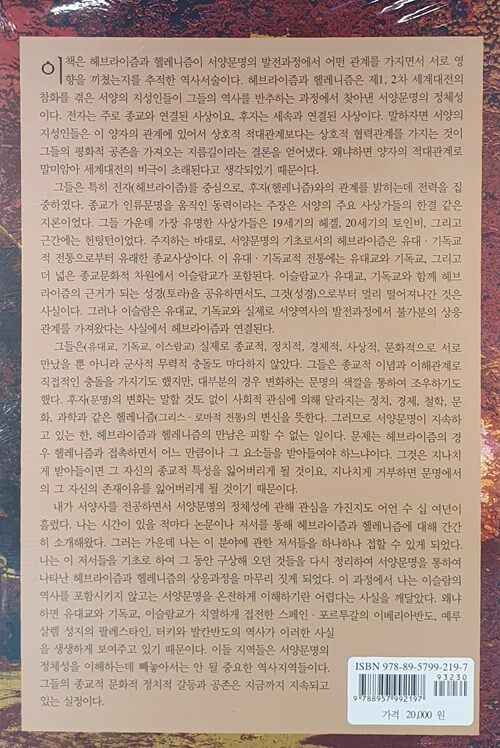 이 책은 헤브라이즘과 헬레니즘이 서양문명의 발전과정에서 어떤 관계를 가지면서 서로 영
향을 끼쳤는지를 추적한 역사서술이다. 헤브라이즘과 헬레니즘은 제1, 2차 세계대전의
참화를 겪은 서양의 지성인들이 그들의 역사를 반추하는 과정에서 찾아낸 서양문명의 정체성
이다. 전자는 주로 종교와 연결된 사상이요, 후자는 세속과 연결된 사상이다. 말하자면 서양의
지성인들은 이 양자의 관계에 있어서 상호적 적대관계보다는 상호적 협력관계를 가지는 것이
그들의 평화적 공존을 가져오는 지름길이라는 결론을 얻어냈다. 왜냐하면 양자의 적대관계로
말미암아 세계대전의 비극이 초래된다고 생각되었기 때문이다.
그들은 특히 전자(헤브라이즘)를 중심으로, 후자(헬레니즘)와의 관계를 밝히는데 전력을 집
중하였다. 종교가 인류문명을 움직인 동력이라는 주장은 서양의 주요 사상가들의 한결 같은
지론이었다. 그들 가운데 가장 유명한 사상가들은 19세기의 헤겔, 20세기의 토인비, 그리고
근간에는 헌팅턴이었다. 주지하는 바대로, 서양문명의 기초로서의 헤브라이즘은 유대·기독교
적 전통으로부터 유래한 종교사상이다. 이 유대·기독교적 전통에는 유대교와 기독교, 그리고
더 넓은 종교문화적 차원에서 이슬람교가 포함된다. 이슬람교가 유대교, 기독교와 함께 헤브
라이즘의 근거가 되는 성경(토라)을 공유하면서도, 그것(성경)으로부터 멀리 떨어져나간 것은
사실이다. 그러나 이슬람은 유대교, 기독교와 실제로 서양역사의 발전과정에서 불가분의 상응
관계를 가져왔다는 사실에서 헤브라이즘과 연결된다.
그들은(유대교, 기독교, 이스람교) 실제로 종교적, 정치적, 경제적, 사상적, 문화적으로 서로
만났을 뿐 아니라 군사적 무력적 충돌도 마다하지 않았다. 그들은 종교적 이념과 이해관계로
직접적인 충돌을 가지기도 했지만, 대부분의 경우 변화하는 문명의 색깔을 통하여 조우하기도
했다. 후자(문명)의 변화는 말할 것도 없이 사회적 관심에 의해 달라지는 정치, 경제, 철학, 문
화, 과학과 같은 헬레니즘(그리스·로마적 전통)의 변신을 뜻한다. 그러므로 서양문명이 지속하
고 있는 한, 헤브라이즘과 헬레니즘의 만남은 피할 수 없는 일이다. 문제는 헤브라이즘의 경
우 헬레니즘과 접촉하면서 어느 만큼이나 그 요소들을 받아들여야 하느냐이다. 그것은 지나치
게 받아들이면 그 자신의 종교적 특성을 잃어버리게 될 것이요, 지나치게 거부하면 문명에서
의 그 자신의 존재이유를 잃어버리게 될 것이기 때문이다.
내가 서양사를 전공하면서 서양문명의 정체성에 관해 관심을 가진지도 어언 수 십 여년이
흘렀다. 나는 시간이 있을 적마다 논문이나 저서를 통해 헤브라이즘과 헬레니즘에 대해 간간
히 소개해왔다. 그러는 가운데 나는 이 분야에 관한 저서들을 하나하나 접할 수 있게 되었다.
나는 이 저서들을 기초로 하여 그 동안 구상해 오던 것들을 다시 정리하여 서양문명을 통하여
나타난 헤브라이즘과 헬레니즘의 상응과정을 마무리 짓게 되었다. 이 과정에서 나는 이슬람의
역사를 포함시키지 않고는 서양문명을 온전하게 이해하기란 어렵다는 사실을 깨달았다. 왜냐
하면 유대교와 기독교, 이슬람교가 치열하게 접전한 스페인·포르투갈의 이베리아반도, 예루
살렘 성지의 팔레스타인, 터키와 발칸반도의 역사가 이러한 사실
을 생생하게 보여주고 있기 때문이다. 이들 지역들은 서양문명의
정체성을 이해하는데 빼놓아서는 안 될 중요한 역사지역들이다.
그들의 종교적 문화적 정치적 갈등과 공존은 지금까지 지속되고
있는 실정이다.
ISBN 978-89-5799-219-7
93230
9 788957 992197
가격 20,000 원